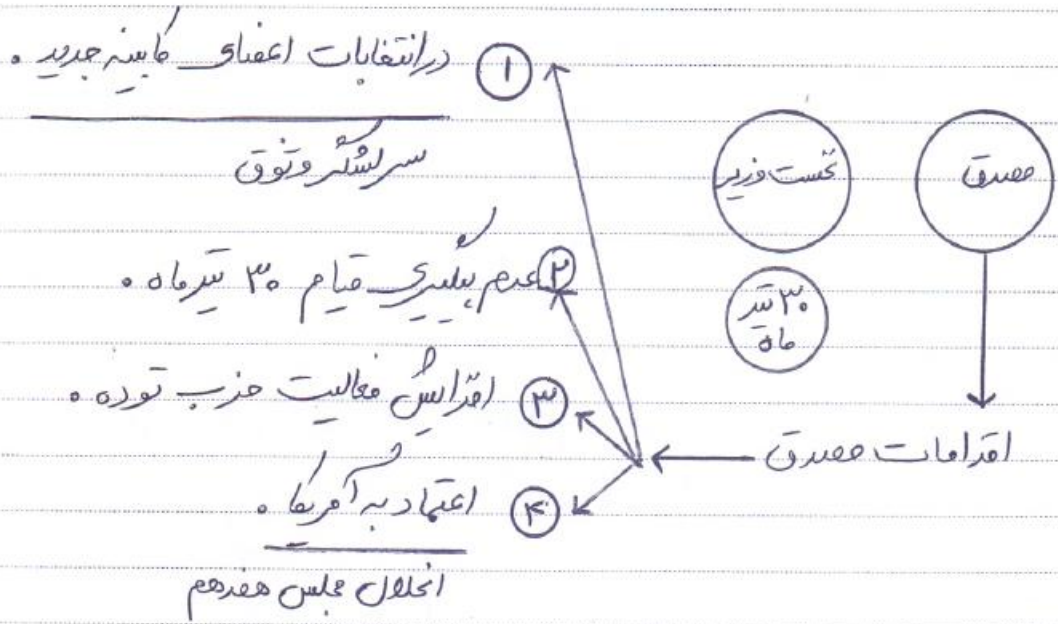 مصدق
نخست وزیر
۳۰ تیر
ماه
اقدامات مصدق
① در انتخابات اعضای کابینه جدید .
سرلشگر وثوق
② عدم پیگیری قیام ۳۰ تیرماه .
③ افزایش فعالیت حزب توده .
④ اعتماد به آمریکا .
انحلال مجلس هفدهم